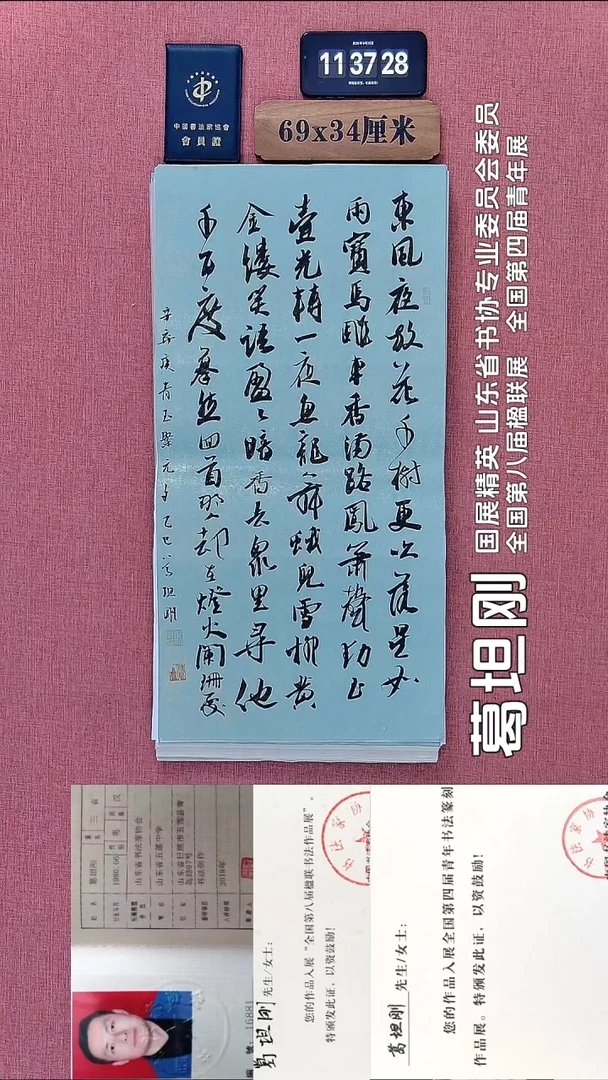 中國書法家協會
會員證
11 37 28
69x34厘米
東風夜放花千樹更吹落星如
雨寶馬雕車香滿路鳳簫聲動玉
壺光轉一夜魚龍舞蛾兒雪柳黃
金縷笑語盈〻暗香去眾里尋他
千百度驀然回首那人却在燈火闌珊處
辛棄疾青玉案元夕乙巳葛坦剛
葛坦刚
国展精英 山东省书协专业委员会委员
全国第八届楹联展 全国第四届青年展
山东省书法家协会
山东省五莲中学
书法创作
2018年
16881
葛坦刚 先生/女士：
您的作品入展“全国第八届楹联书法作品展”。
特颁发此证，以资鼓励！
葛坦刚 先生/女士：
您的作品入展全国第四届青年书法篆刻
作品展。特颁发此证，以资鼓励！